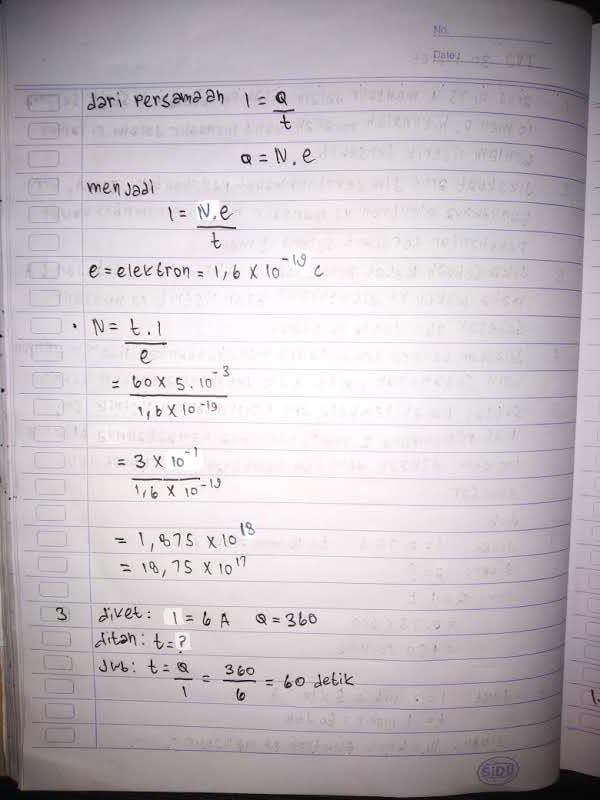 No.
Date:
dari Persamaan I = Q
t
Q = N.e
menjadi
I = N.e
t
e = elektron = 1,6 × 10⁻¹⁹ C
• N = t.I
e
= 60 × 5.10⁻³
1,6 × 10⁻¹⁹
= 3 × 10⁻¹
1,6 × 10⁻¹⁹
= 1,875 × 10¹⁸
= 18,75 × 10¹⁷
3 diket: I = 6 A Q = 360
ditan: t = ?
Jwb: t = Q = 360 = 60 detik
I 6
SIDU